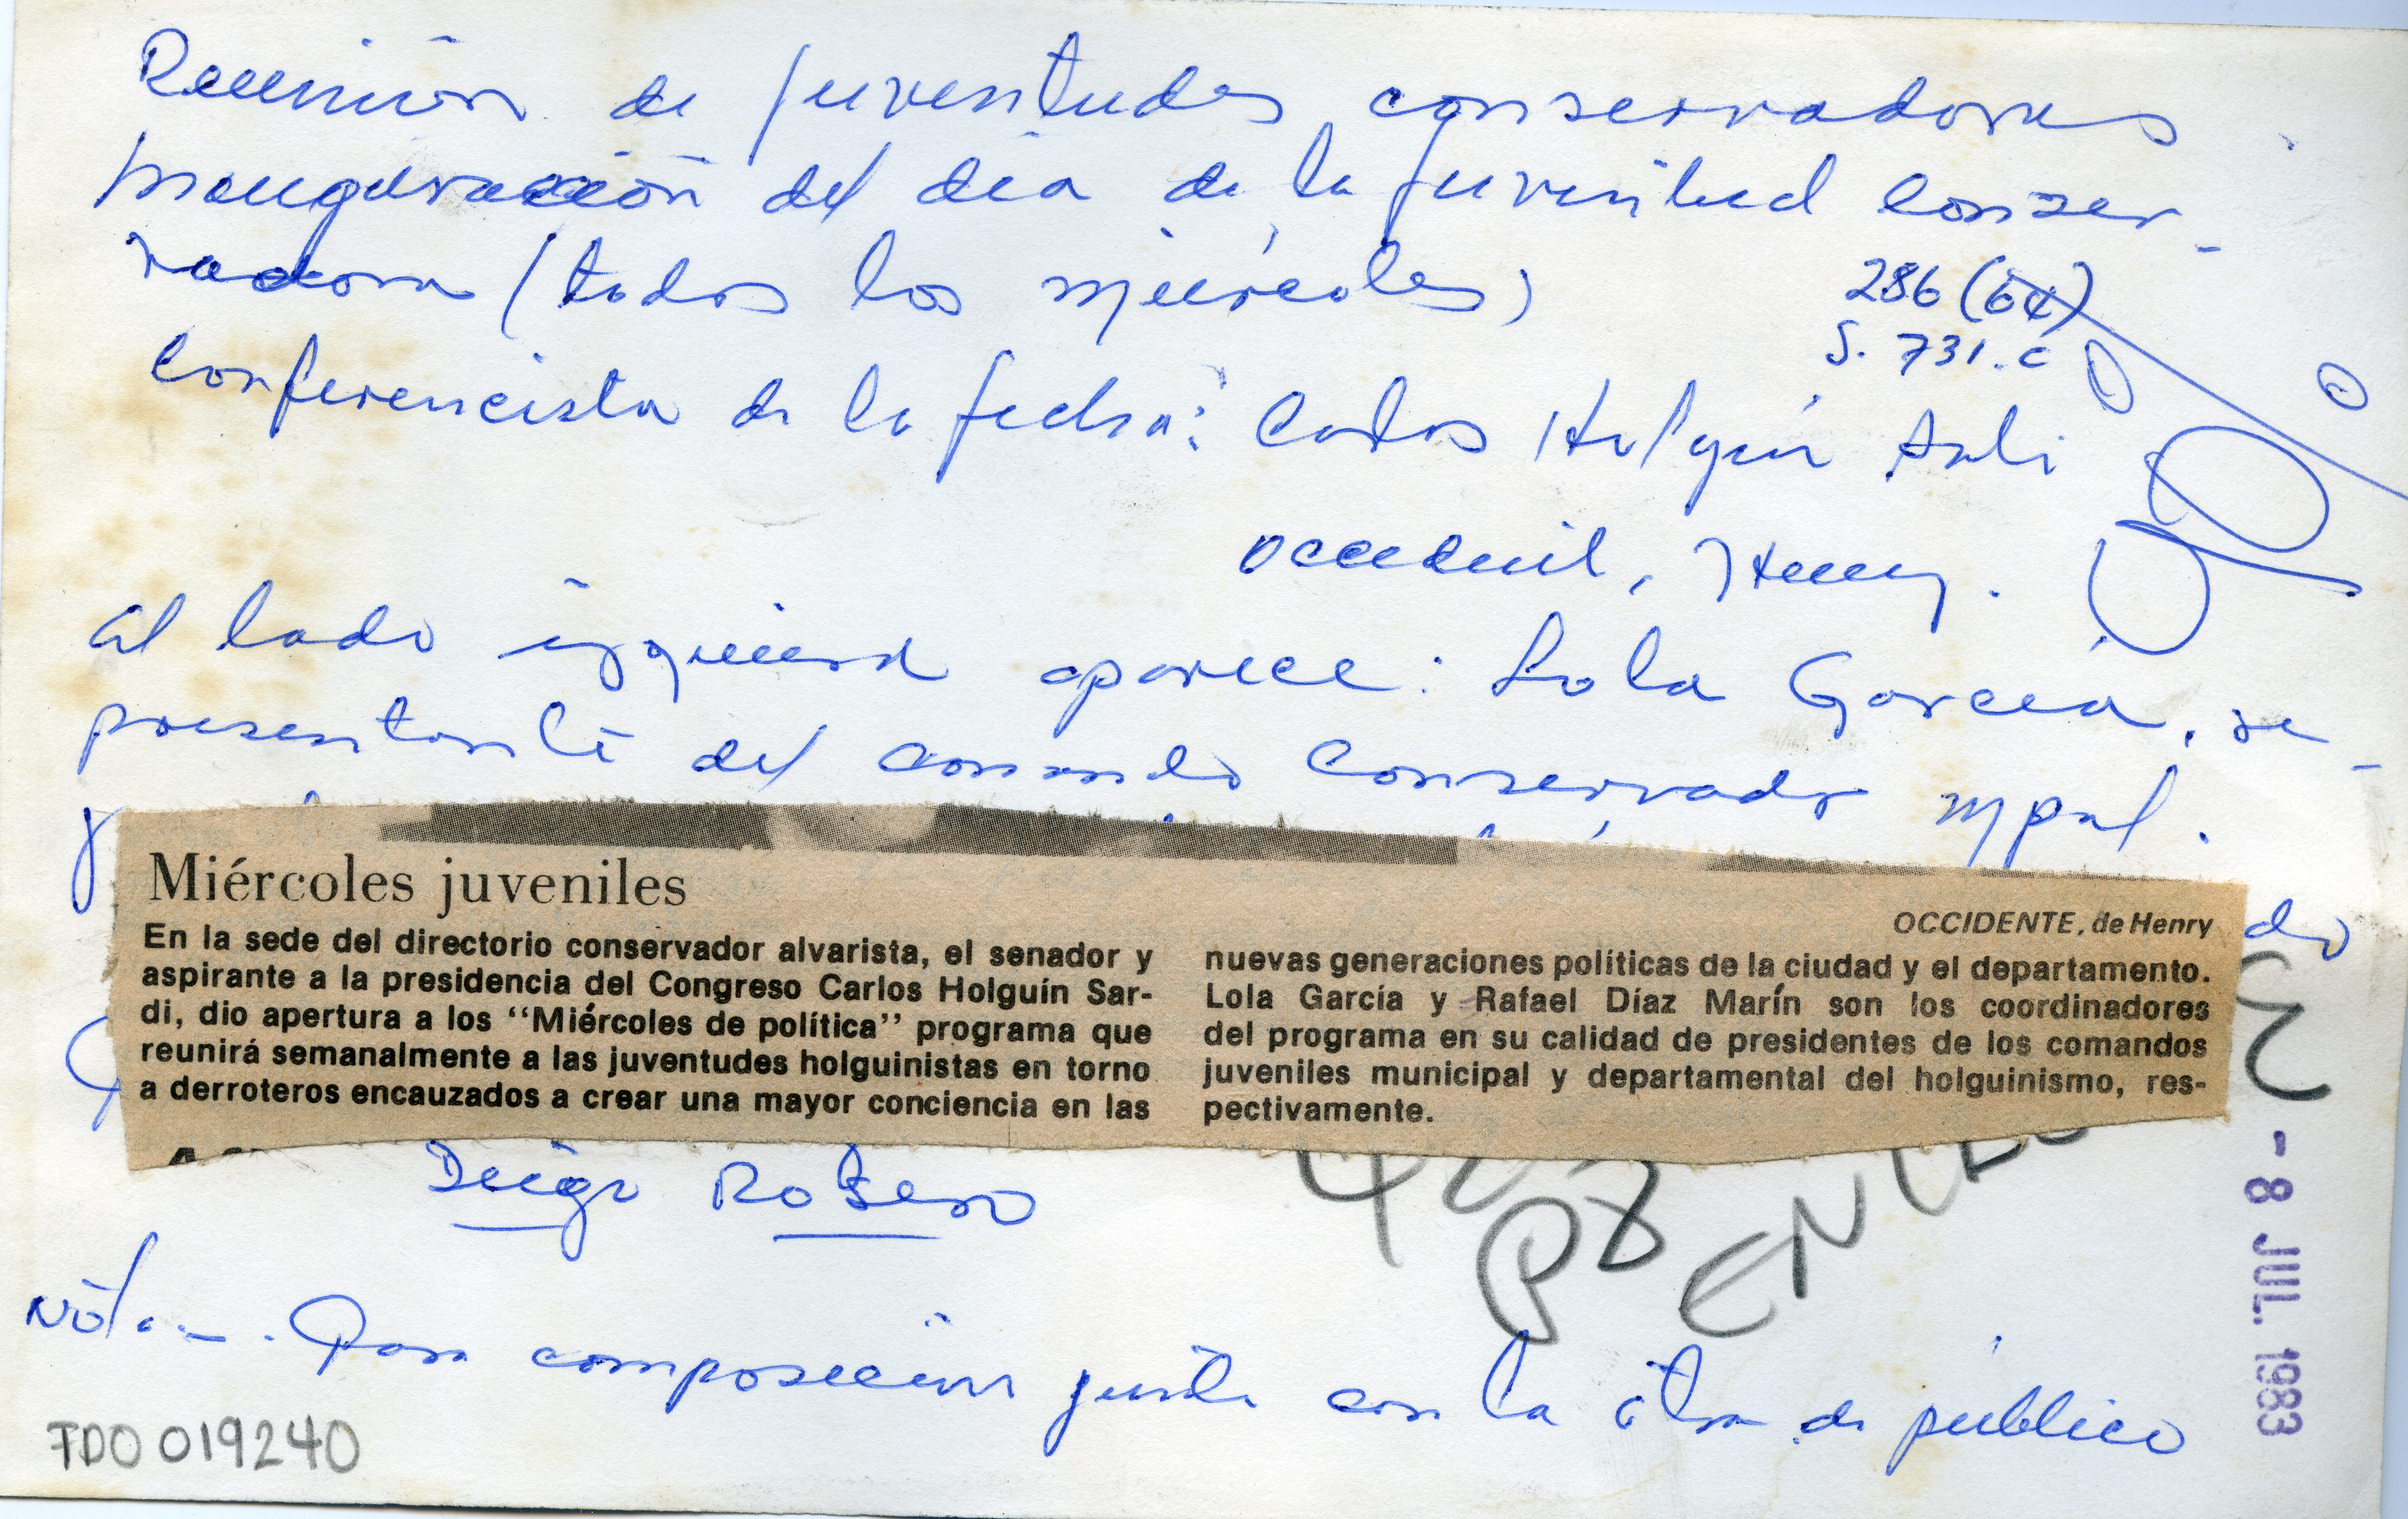 Reunión de juventudes conservadoras
Inauguración del día de la juventud conser-
vadora (todos los miércoles)
286 (64)
S. 731. c
Conferencista de la fecha: Carlos Holguín Sardi
Occidente, Henry.
Al lado izquierdo aparece: Lola García, re-
presentante del comando conservador mpal.
do
Miércoles juveniles
OCCIDENTE, de Henry
En la sede del directorio conservador alvarista, el senador y
aspirante a la presidencia del Congreso Carlos Holguín Sar-
di, dio apertura a los “Miércoles de política” programa que
reunirá semanalmente a las juventudes holguinistas en torno
a derroteros encauzados a crear una mayor conciencia en las
nuevas generaciones políticas de la ciudad y el departamento.
Lola García y Rafael Díaz Marín son los coordinadores
del programa en su calidad de presidentes de los comandos
juveniles municipal y departamental del holguinismo, res-
pectivamente.
Diego Rosero
Nota.- Para composición junto con la otra de público
- 8 JUL. 1983
TDO 019240